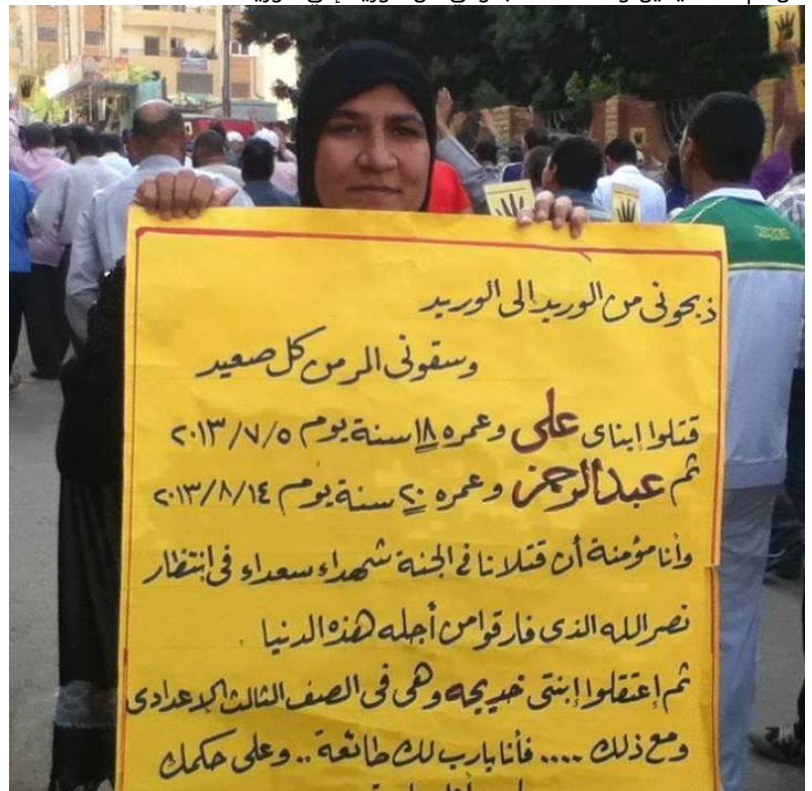 ذبحونى من الوريد إلى الوريد
وسقونى المر من كل صعيد
قتلوا إبناى على وعمره ١٨ سنة يوم ٢٠١٣/٧/٥
ثم عبدالرحمن وعمره ٢٠ سنة يوم ٢٠١٣/٨/١٤
وأنا مؤمنة أن قتلانا فى الجنة شهداء سعداء فى إنتظار
نصر الله الذى فارقوا من أجله هذه الدنيا .
ثم إعتقلوا إبنتى خديجه وهى فى الصف الثالث الإعدادى
ومع ذلك .... فأنا يارب لك طائعة .. وعلى حكمك